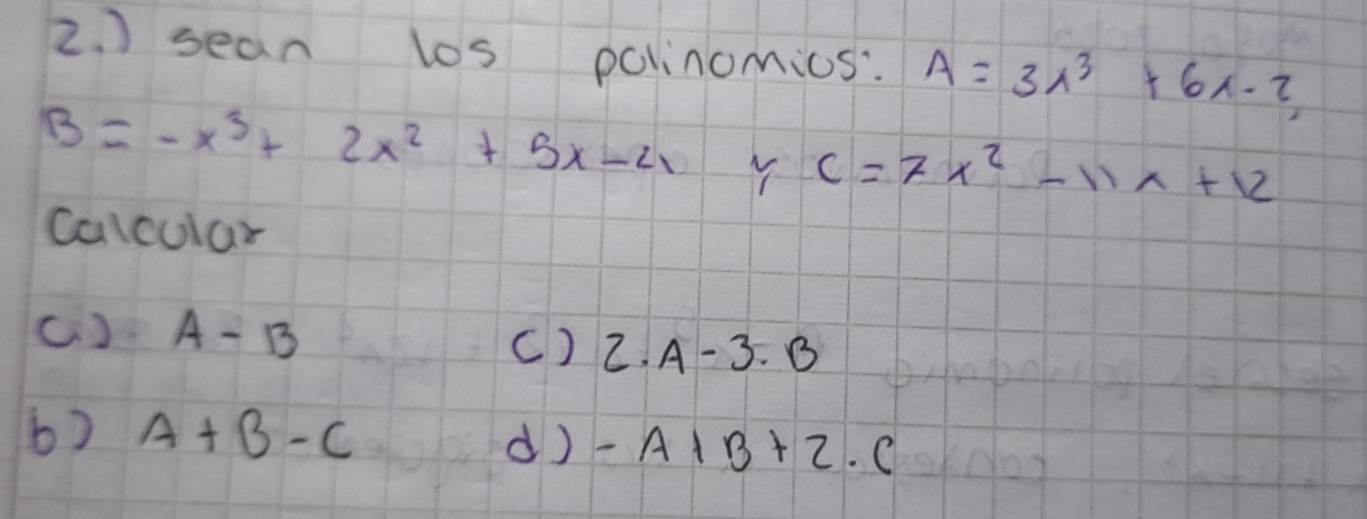 2.) sean los polinomios: A = 3x³ + 6x - 2,
B = -x³ + 2x² + 5x - 2, y C = 7x² - 11x + 12
Calcular
a) A - B c) 2.A - 3.B
b) A + B - C d) - A + B + 2.C